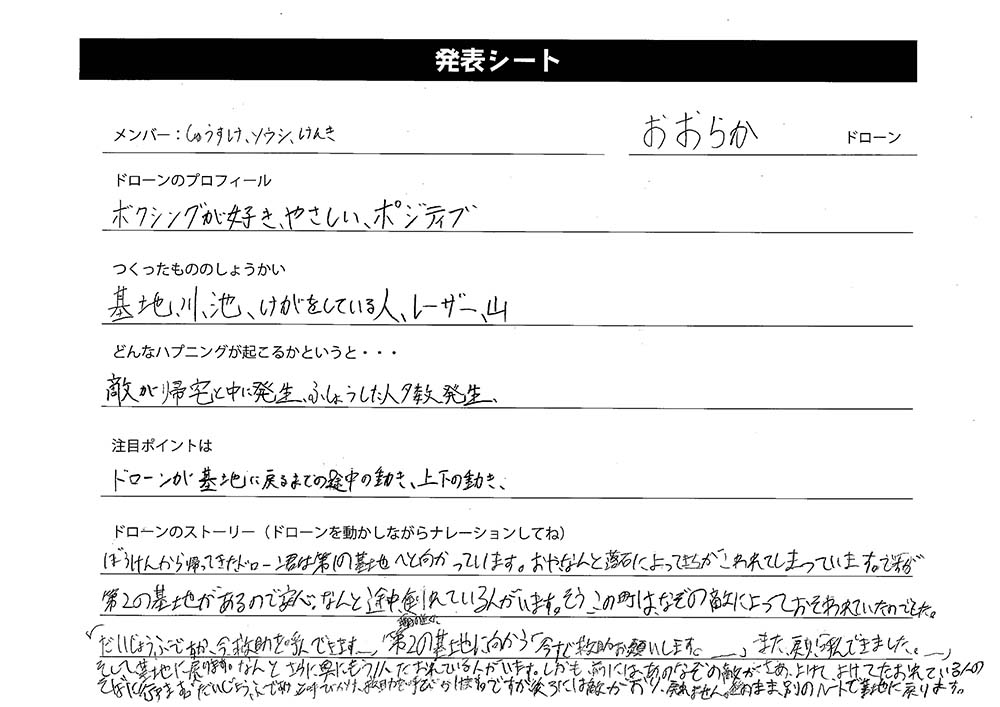 発表シート
メンバー：しゅうすけ、ソウシ、けんき
おおらか ドローン
ドローンのプロフィール
ボクシングが好き、やさしい、ポジティブ
つくったもののしょうかい
基地、川、池、けがをしている人、レーザー、山
どんなハプニングが起こるかというと・・・
敵が帰宅と中に発生、ふしょうした人多数発生、
注目ポイントは
ドローンが基地に戻るまでの途中の動き、上下の動き、
ドローンのストーリー（ドローンを動かしながらナレーションしてね）
ぼうけんから帰ってきたドローン君は第1の基地へと向かっています。おやなんと落石によって こわれてしまっています。
第2の基地があるので安心。なんと途中倒れている人がいます。そうこの町はなぞの敵によっておそわれていたのでした。
「だいじょうぶですか、今救助を呼んできます。」 第2の基地に向かう「今すぐ救助お願いします。」 また、戻り「呼んできました。」
そして基地に戻ります。なんと さらに奥にもう1人たおれている人がいます。しかも、前にはあのなぞの敵が さあ、よけて よけてたおれている人の
そばに行き だいじょうぶですか 救助を ですが後ろには敵がおり、戻れません。 まま、別のルートで基地に戻ります。